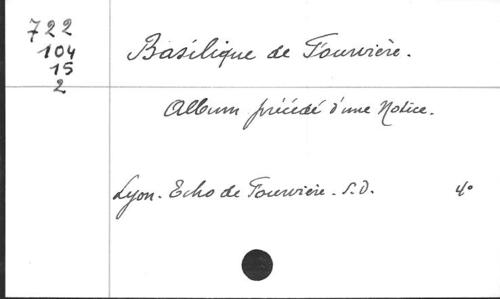 722
104
15
2
Basilique de Fourvière.
Album précédé d'une Notice.
Lyon. Echo de Fourvière. S.D. 4°